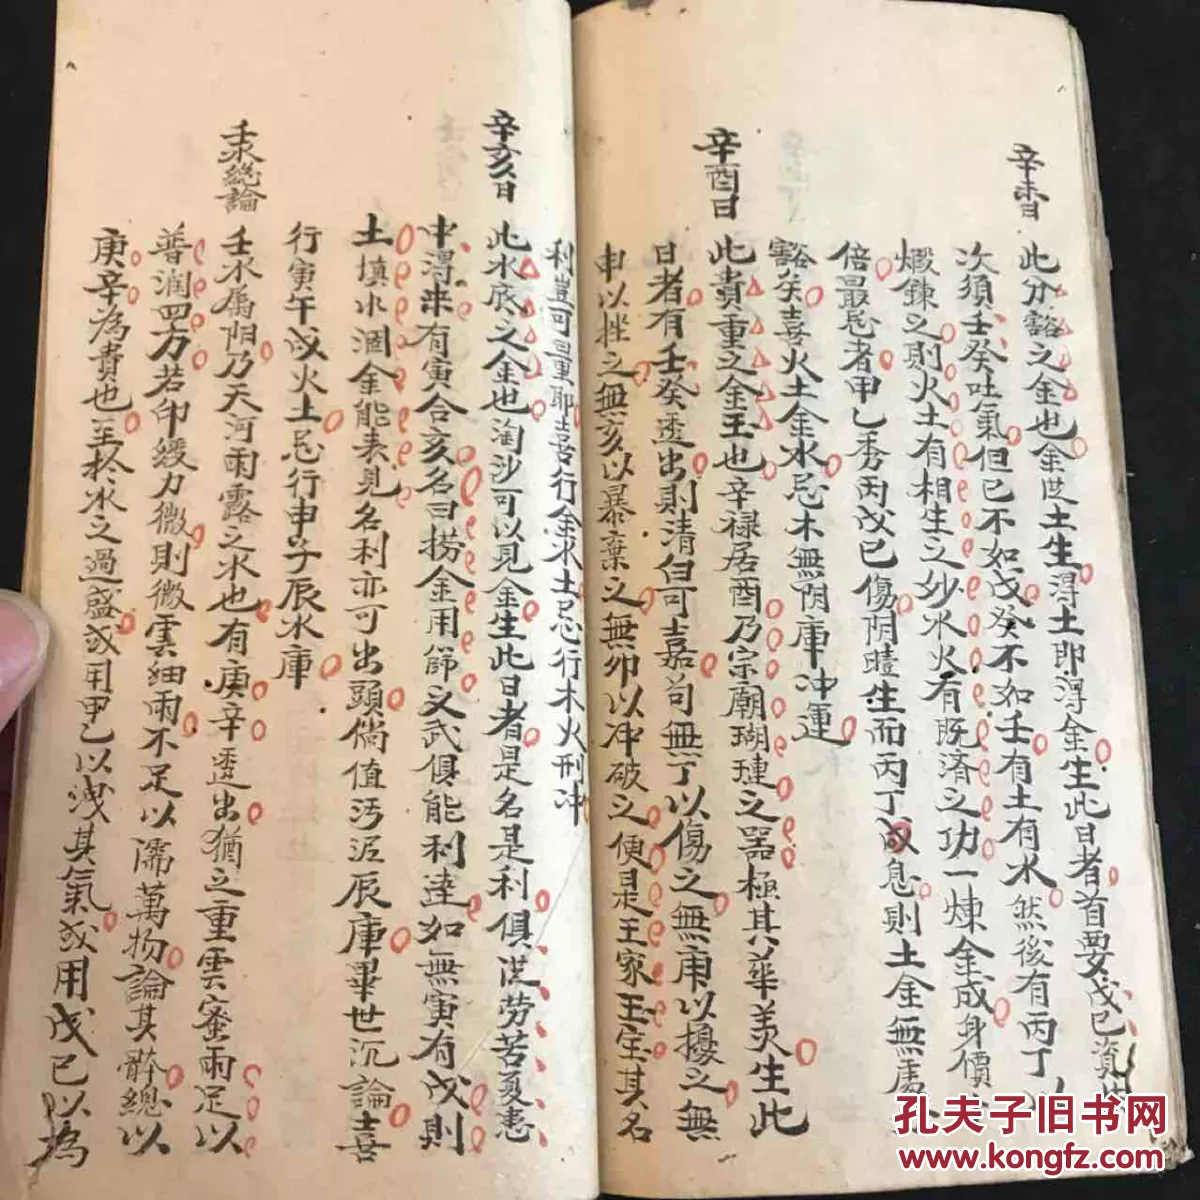 辛未日
此分豁之金也金世土生淂土即淂金生此日者首要戊己資
次須壬癸吐氣但己不如戊癸不如壬有土有水然後有丙丁以
煆鍊之則火土有相生之妙水火有既済之功一煉金成身價
倍最忌者甲乙秀丙戊己傷阴曀生而丙丁戌息則土金無處
豁矣喜火土金水忌木無阴庫冲運
辛酉日
此貴重之金玉也辛禄居酉乃宗廟瑚璉之器極其華美生此
日者有壬癸透出則清白可嘉苟無丁以傷之無庚以擾之無
申以挫之無亥以暴棄之無卯以冲破之便是王家玉宝其名
利豈可量耶喜行金水土忌行木火刑冲
辛亥日
此水底之金也淘沙可以見金生此日者是名是利俱従劳苦憂患
中淂来有寅合亥名曰捞金用篩文武俱能利達如無寅有戌則
土填水涸金能表見名利亦可出頭倘值汚泥辰庫畢世沉論喜
行寅午戌火土忌行申子辰水庫
壬水総論
壬水属阳乃天河雨露之水也有庚辛透出猶之重雲蜜雨足以
普潤四方若印緩力微則微雲細雨不足以濡萬物論其骵總以
庚辛為貴也至於水之過盛或用甲乙以洩其氣或用戊己以為
孔夫子旧书网
www.kongfz.com